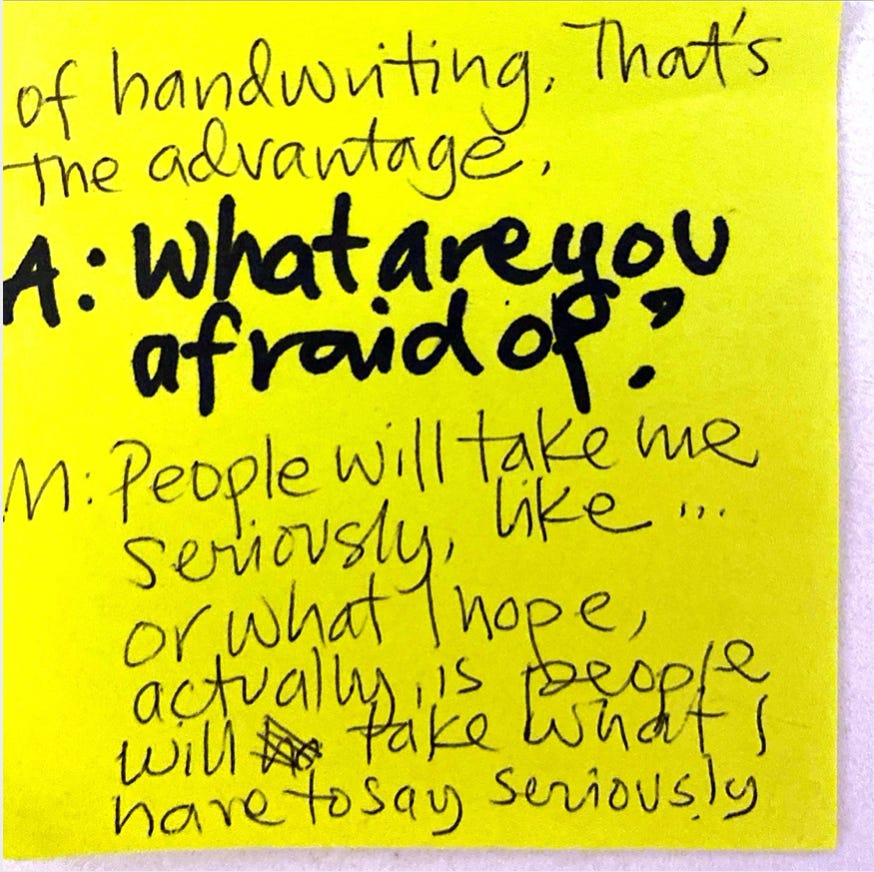 of handwriting. That's
The advantage.
A: What are you
afraid of?
M: People will take me
seriously, like ...
or what I hope,
actually, is people
will take what I
have to say seriously